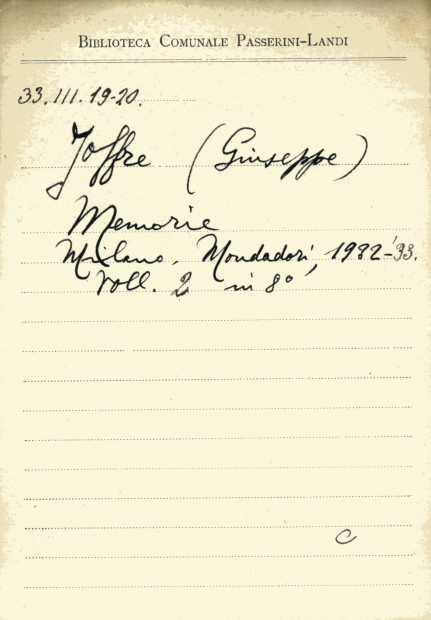 BIBLIOTECA COMUNALE PASSERINI-LANDI
33.III.19-20.
Joffre (Giuseppe)
Memorie
Milano, Mondadori, 1932-'33.
Voll. 2 in 8°
C